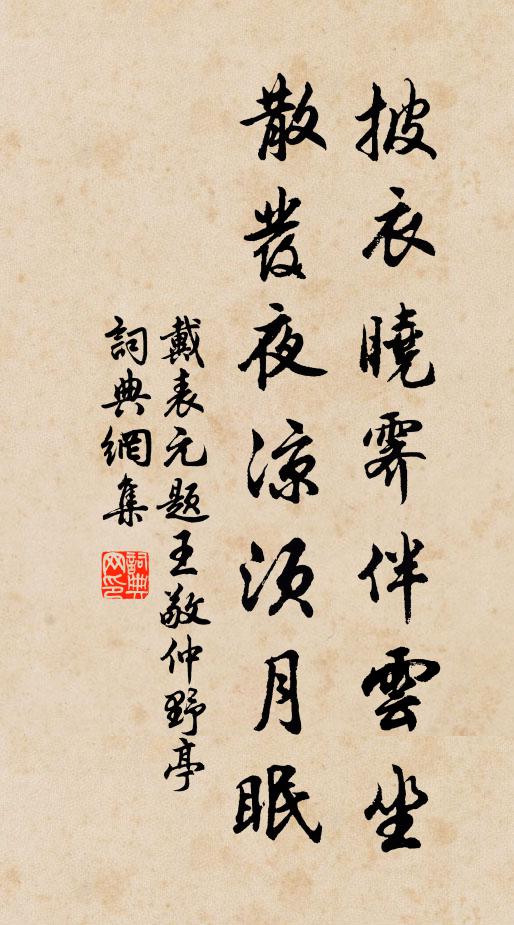 披衣曉霽伴雲坐
散發夜涼須月眠
戴表元題王敬仲野亭
詞典網集
詞典網印